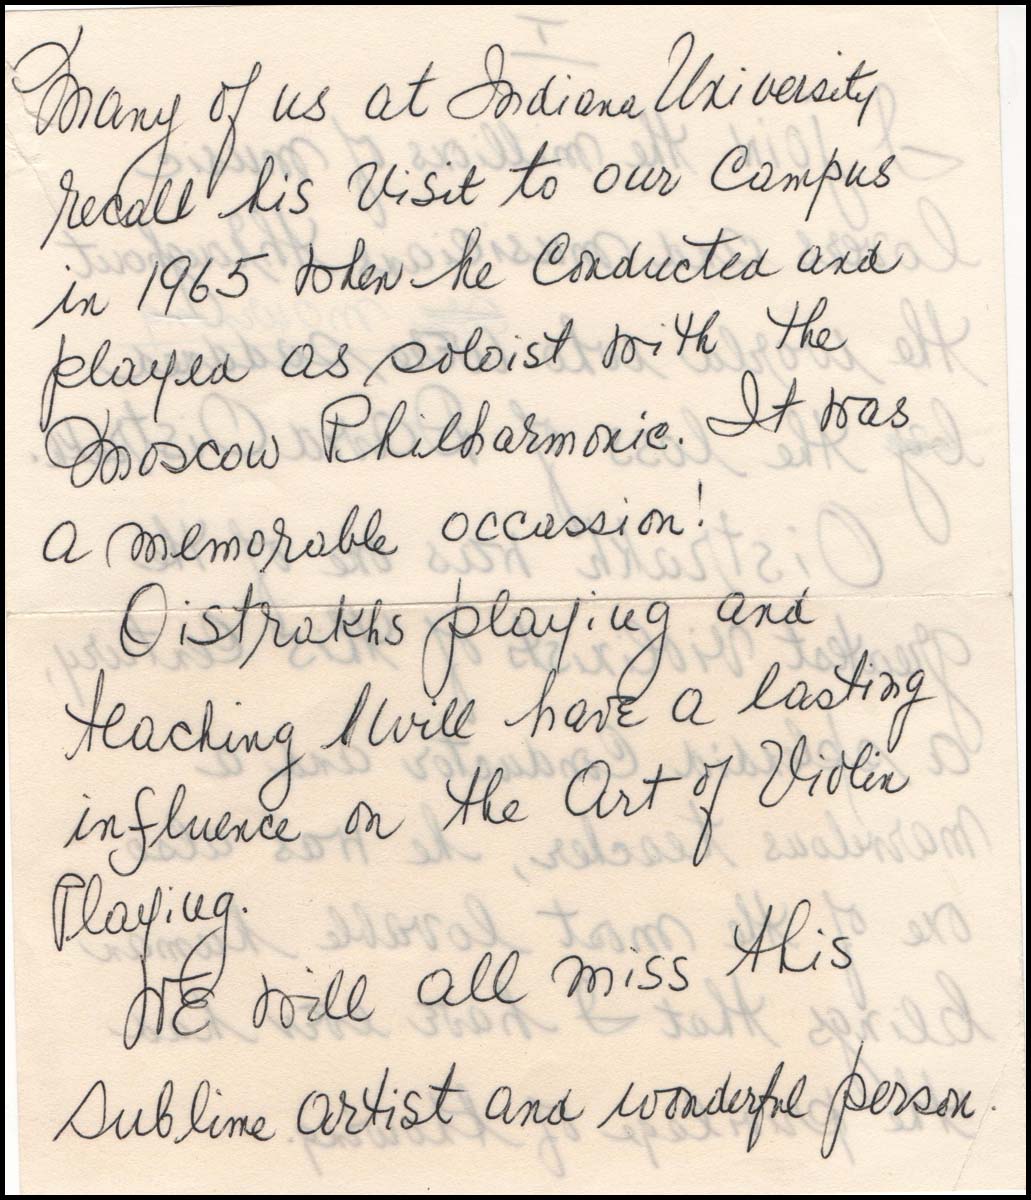 Many of us at Indiana University
recall his Visit to our Campus
in 1965 when he Conducted and
played as soloist with the
Moscow Philharmonic. It was
a memorable occassion!
Oistrakhs playing and
teaching will have a lasting
influence on the Art of Violin
Playing.
WE will all miss this
sublime artist and wonderful person.